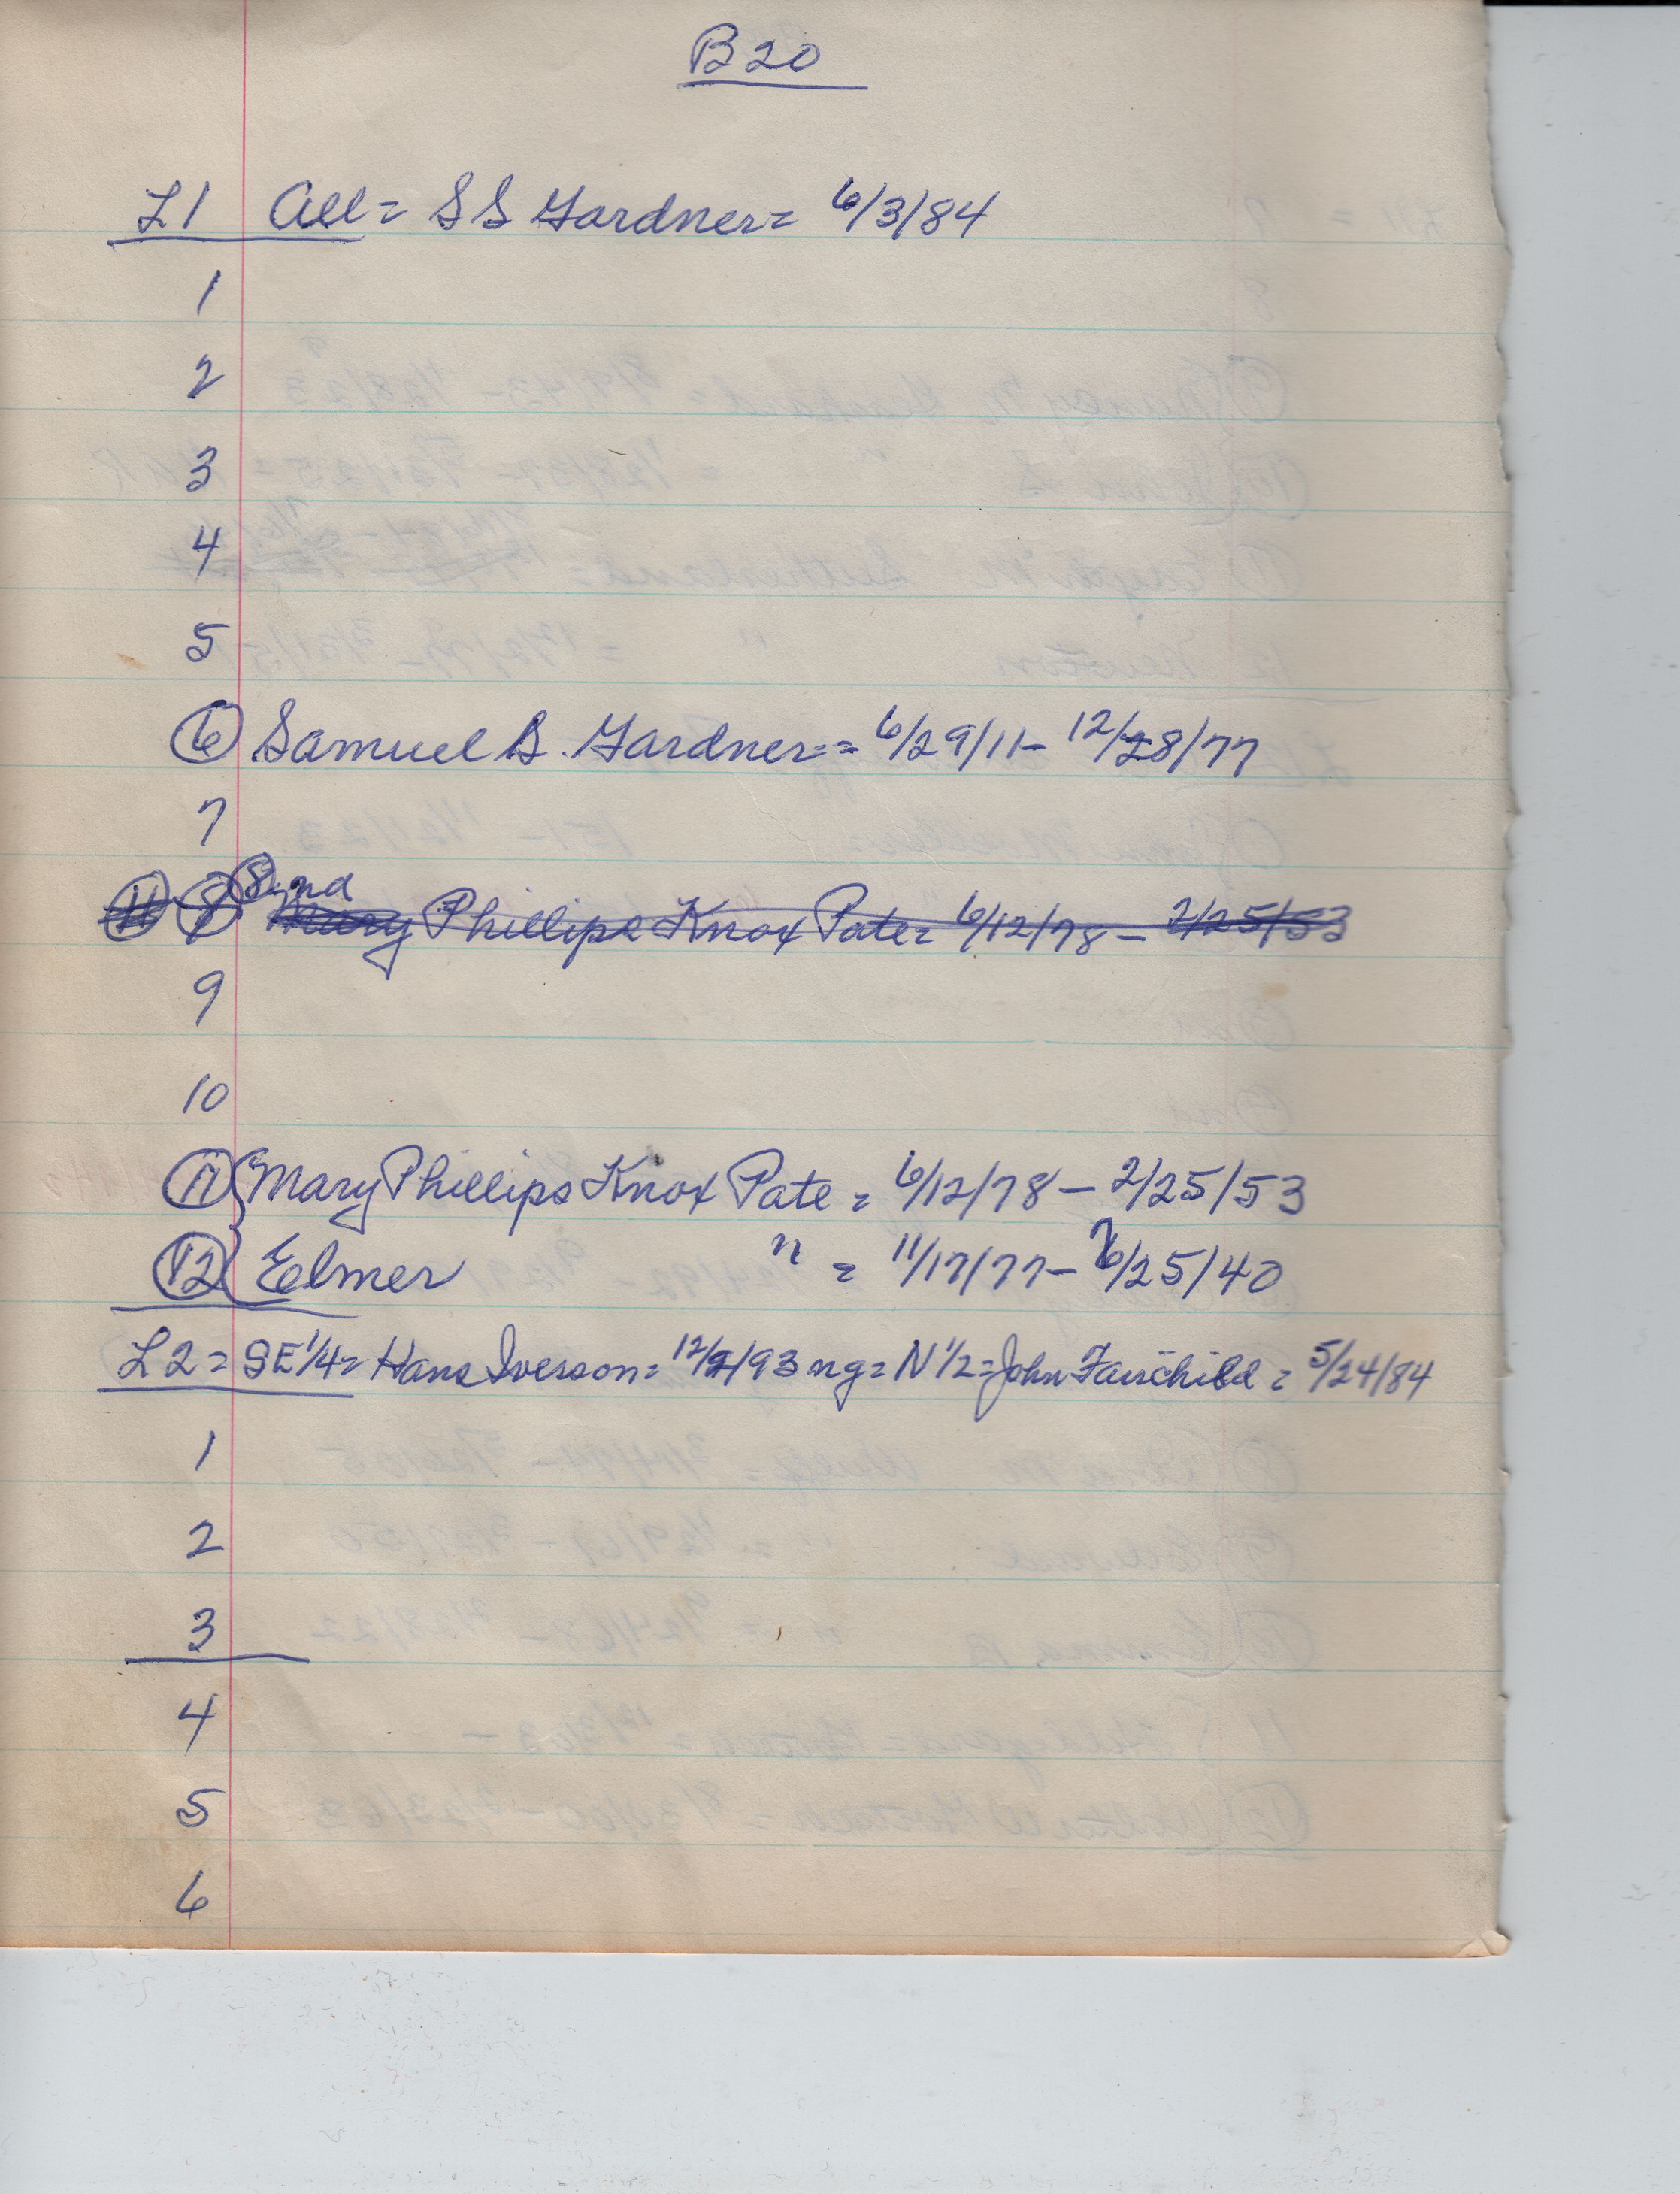 B20
L1 All = S S Gardner = 6/3/84
1
2
3
4
5
6 Samuel S. Gardner = 6/29/11 - 12/28/77
7
11 8 8 nd Mary Phillips Knox Pate = 6/12/78 - 2/25/53
9
10
11 Mary Phillips Knox Pate = 6/12/78 - 2/25/53
12 Elmer " = 11/17/77 - /25/40
L2 = SE 1/4 = Hans Iverson = 12/2/93 ng = N 1/2 = John Fairchild = 5/24/84
1
2
3
4
5
6